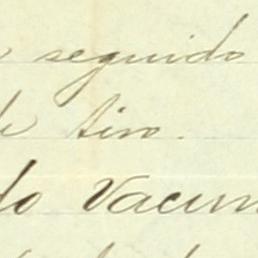 seguido
de tiro.
do Vacun